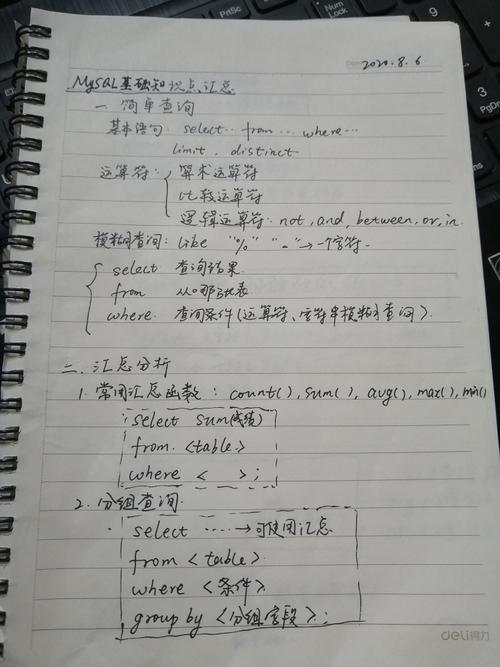 2020.8.6
MySQL基础知识点汇总
一 简单查询
基本语句: select… from … where…
limit . distinct
运算符: 算术运算符
比较运算符
逻辑运算符: not, and, between, or, in.
模糊查询: like "%" "-"→一个字符.
select 查询结果
from 从哪张表
where. 查询条件(运算符、字符串模糊查询).
二. 汇总分析
1. 常用汇总函数: count(), sum( ), avg(), max(), min()
select sum(成绩)
from <table>
where < >;
2. 分组查询.
select ……→可使用汇总
from <table>
where <条件>
group by <分组字段>;
deli得力
PrtSc
Num
Lock
PgDn
3